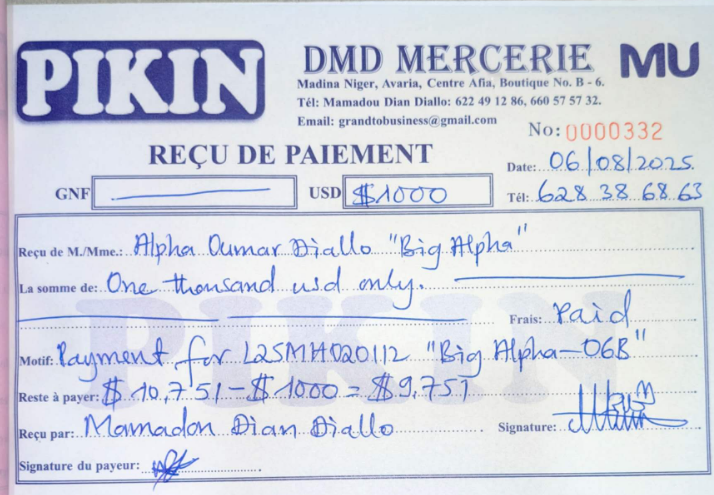 PIKIN
DMD MERCERIE MU
Madina Niger, Avaria, Centre Afia, Boutique No. B - 6.
Tél: Mamadou Dian Diallo: 622 49 12 86, 660 57 57 32.
Email: grandtobusiness@gmail.com
No: 0000332
REÇU DE PAIEMENT
Date: 06/08/2025
GNF USD $1000 Tél: 628 38 68 63
Reçu de M./Mme.: Alpha Oumar Diallo "Big Alpha"
La somme de: One thousand usd only.
Frais: Paid
Motif: Payment for L25MH020112 "Big Alpha-06B"
Reste à payer: $10,751-$1000=$9,751
Reçu par: Mamadou Dian Diallo Signature:
Signature du payeur:
PIKIN